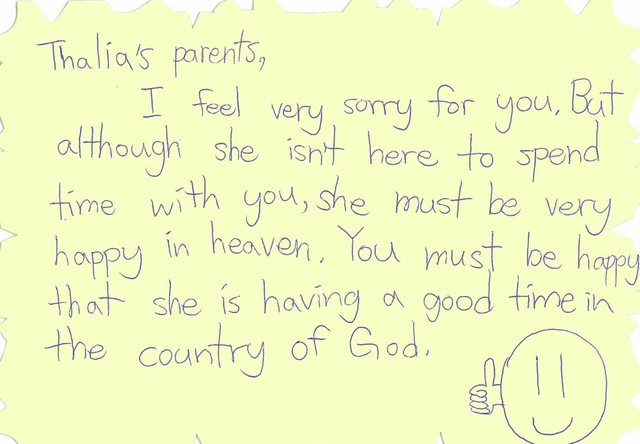 Thalia's parents,
I feel very sorry for you. But
although she isn't here to spend
time with you, she must be very
happy in heaven. You must be happy
that she is having a good time in
the country of God.